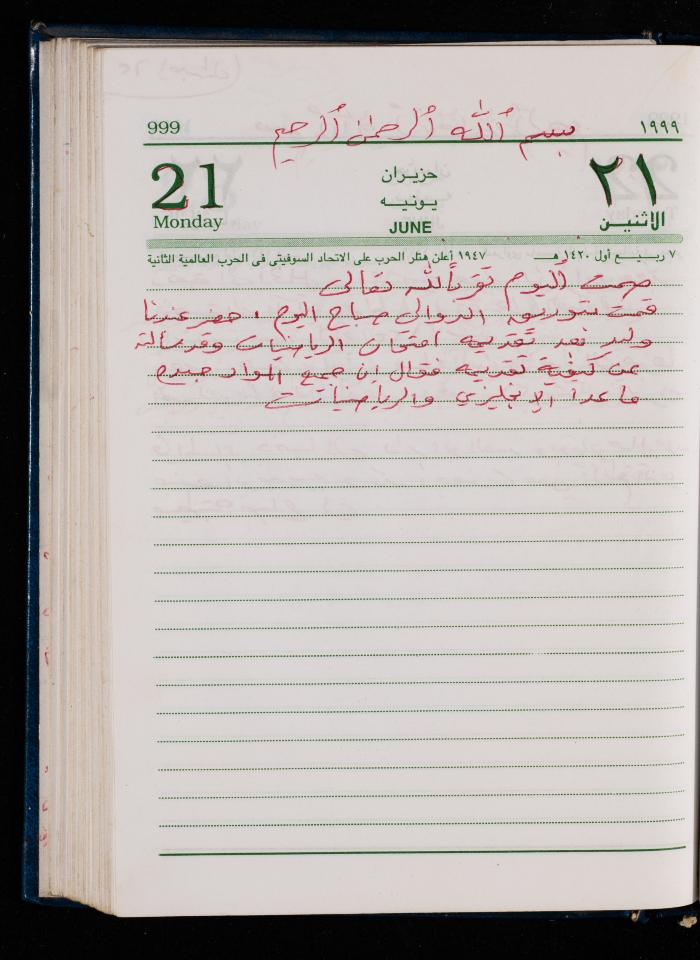 999 بسم الله الرحمن الرحيم ١٩٩٩
21 حزيران ٢١
يونيه
Monday JUNE الاثنين
٧ ربيع أول ١٤٢٠ هـ ١٩٤٧ أعلن هتلر الحرب على الاتحاد السوفيتى فى الحرب العالمية الثانية
صمت اليوم تقرباً لله تعالى
قمت بتوريق الدوالي صباح اليوم ، حضر عندنا
وليد بعد تقديمه امتحان الرياضيات وقد سألته
عن كيفية تقديمه فقال إن جميع المواد جيدة
ما عدا الإنجليزي والرياضيات